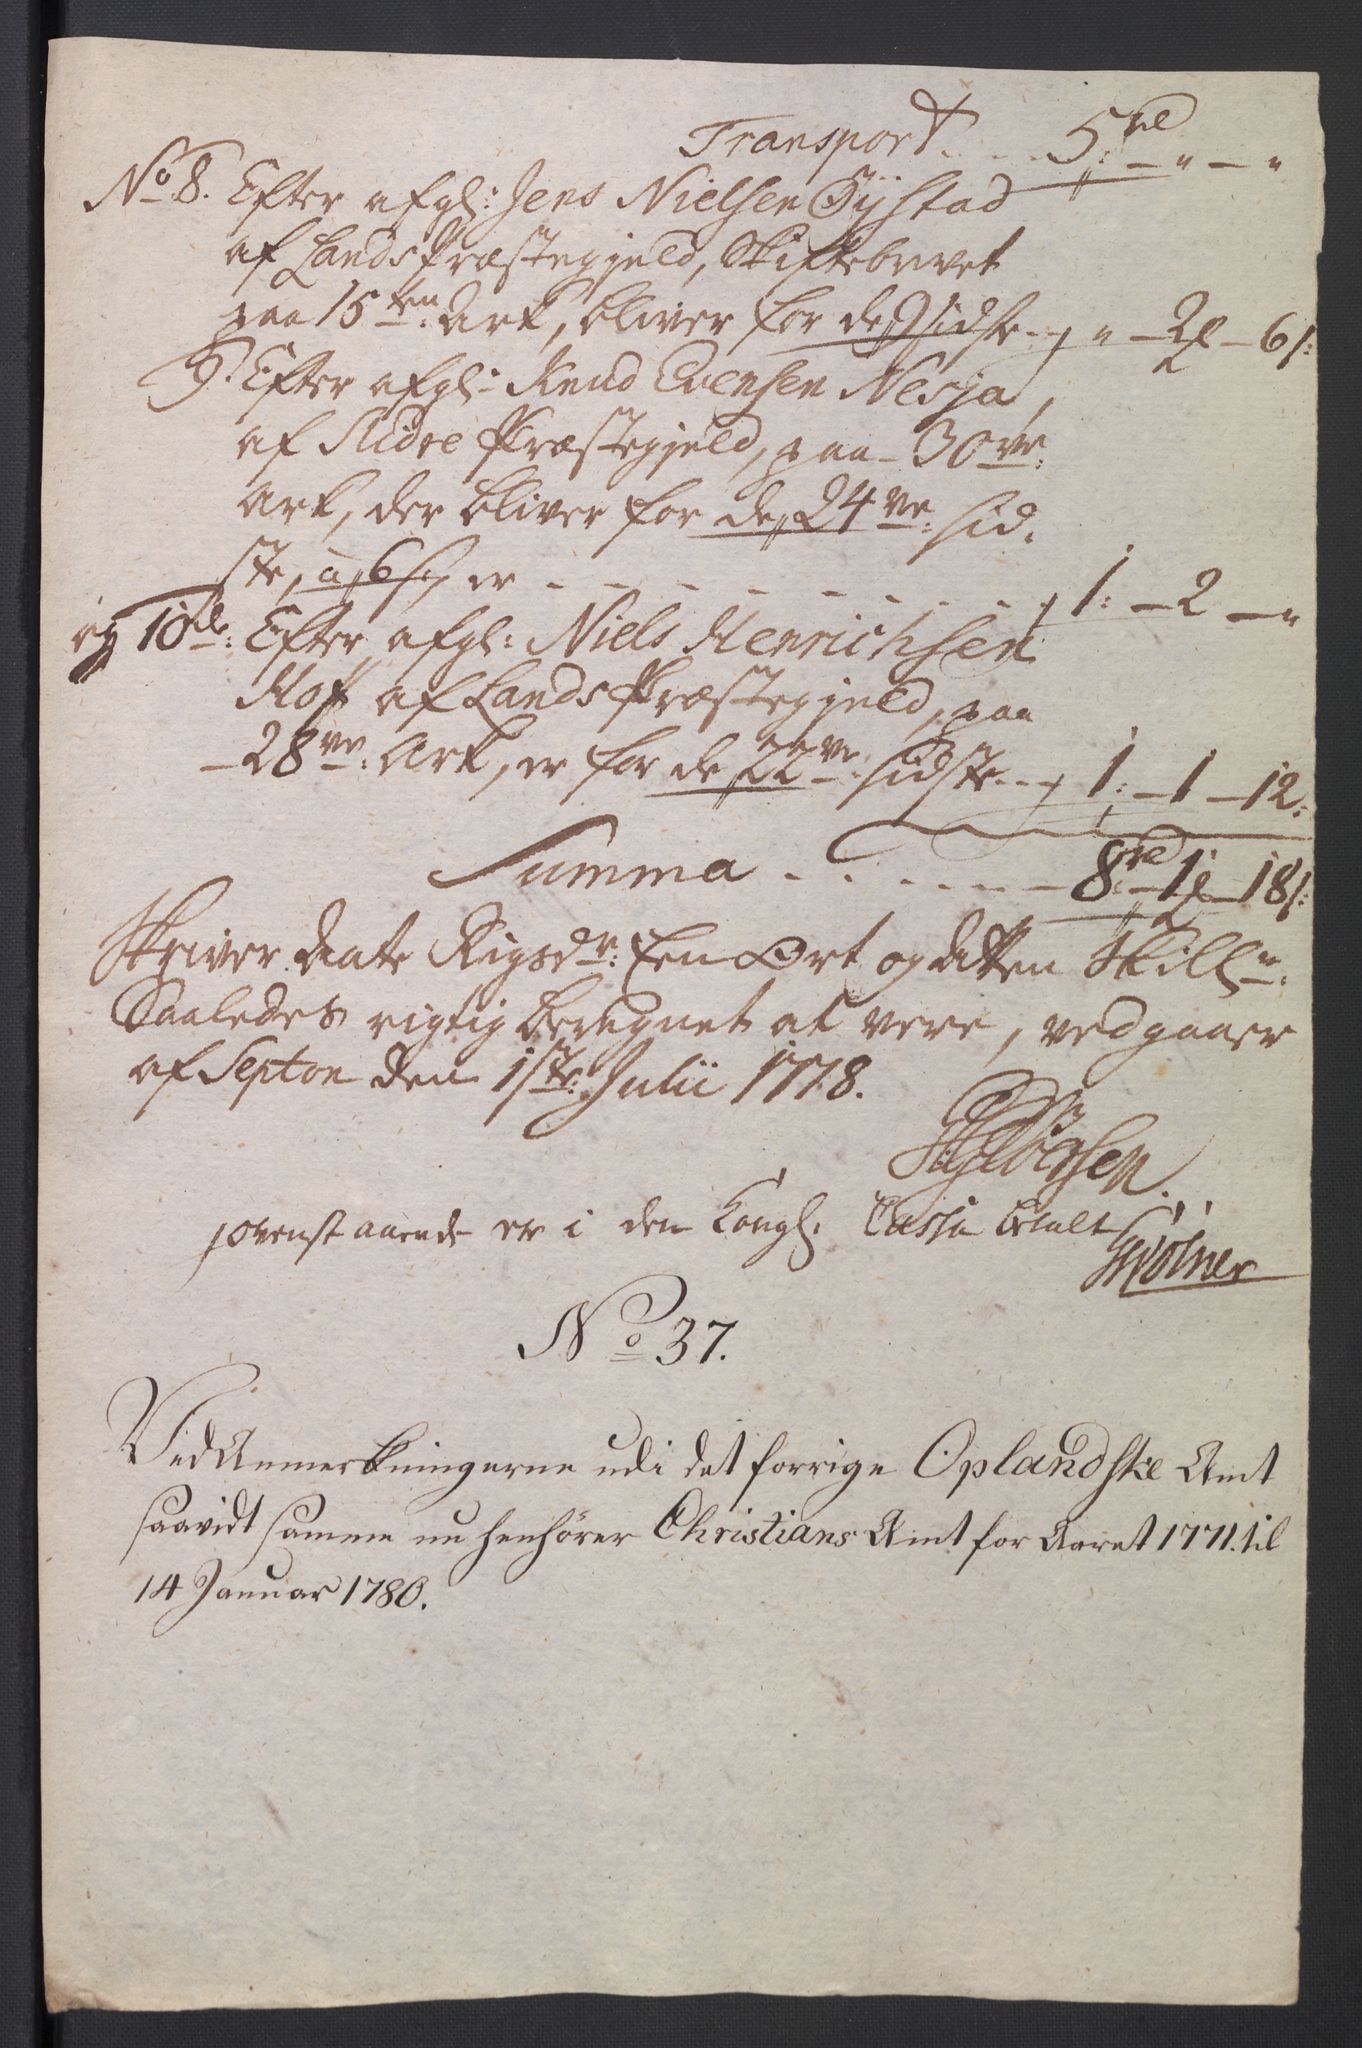 Transport. . . . 5: rd — " — "
No 8. Efter afgl: Jens Nielsen
af Lands Præstegjeld, Skiftebrevet
paa 15 ten: Ark, bliver for de 9 sidste - - , " — 2 — 6 s:
9. Efter afgl: Knud Evensen Nesja,
af Slidre Præstegjeld, paa - 30 ve:
Ark, der bliver for de 24 ve: sid-
ste, a 6 s, er - - - - - - - , 1: — 2 — "
og 10de: Efter afgl: Niels Henrichsen
Hof af Lands Præstegjeld, paa
- 28 ve: Ark, er for de 22 ve: sidste - - , 1: — 1 — 12:
Summa - - - - - - - 8 rd — 1 — 18 s:
Skriver Aate Rigsdr: Een Ort og Atten Skill:
Saaledes rigtig beregnet at vere, vedgaaer
af Septon den 1ste: Julii 1778.
ovenstaaende er i den Kongl: Cassa betalt
No 37.
Ved Anmerkningerne udi det forrige Oplandske Amt
saavidt samme nu henhörer Christians Amt for Aaret 1771. til
14 Januar 1780.